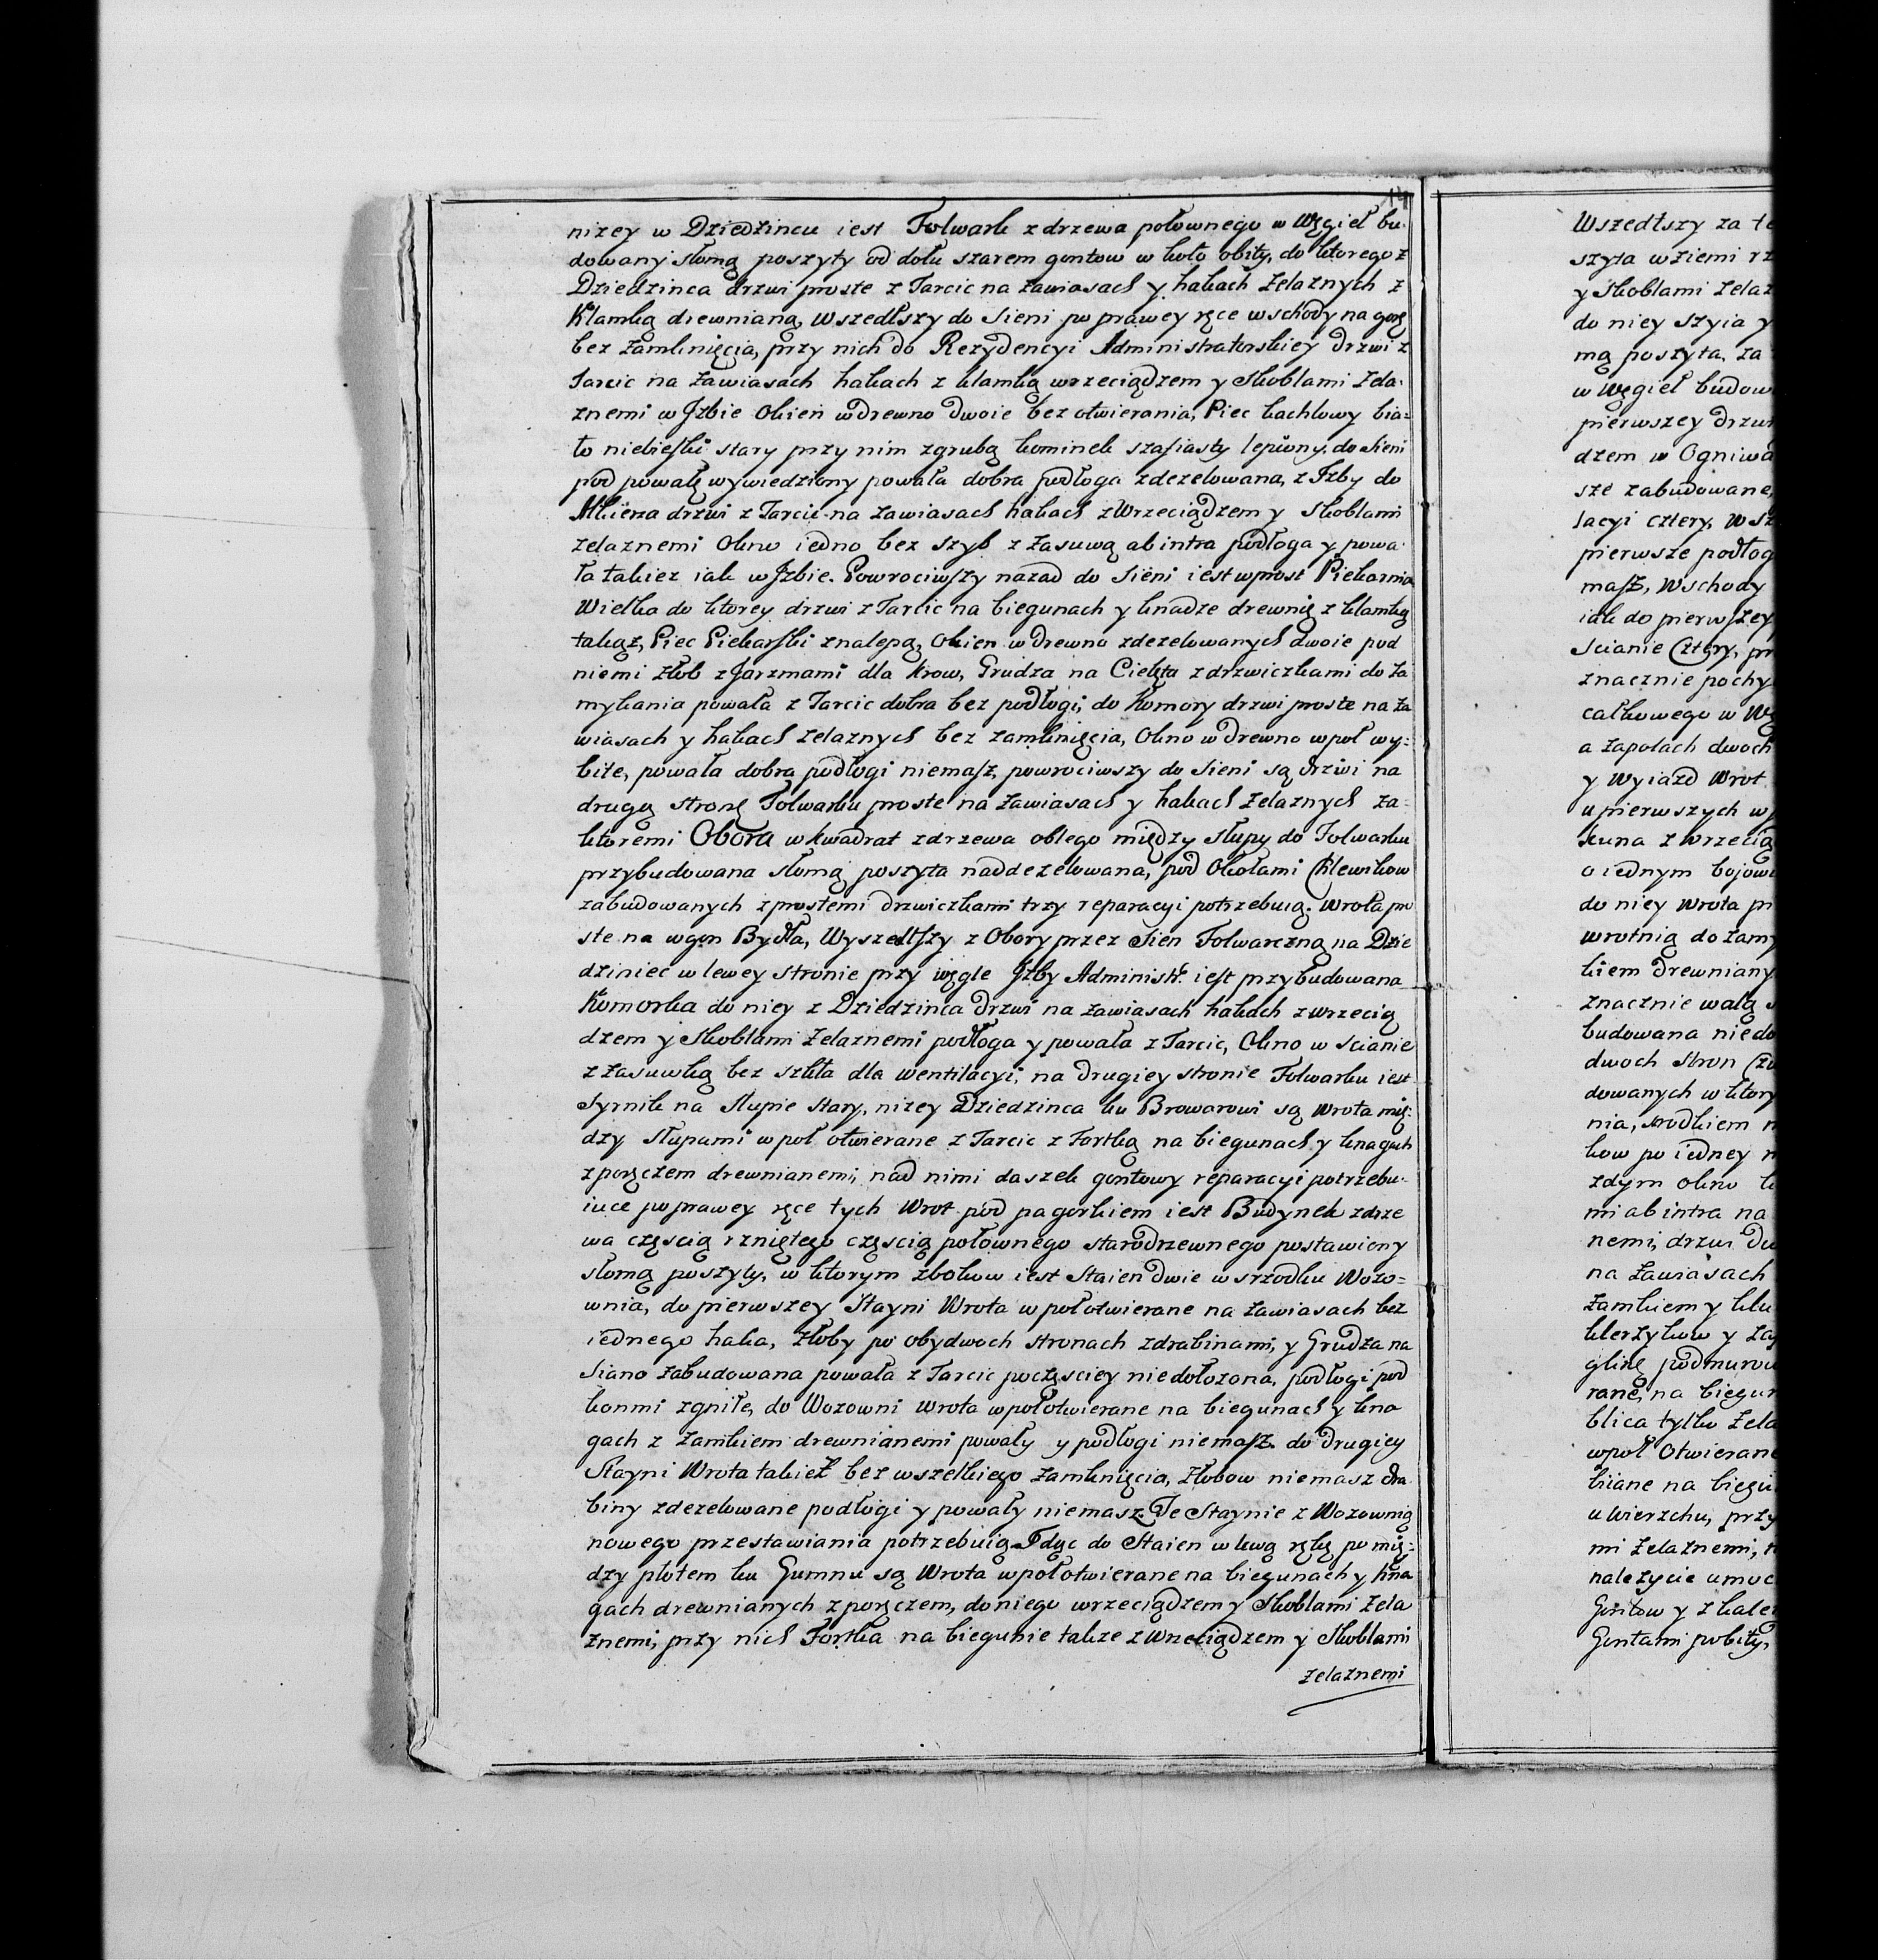 14
nizey w Dziedzincu iest Folwark z drzewa połownego w Węgieł bu-
dowany słomą poszyty od dołu szarem gontow w koło obity, do ktorego z
Dziedzinca drzwi proste z Tarcic na zawiasach y hakach żelaznych z
Klamką drewnianą, Wszedłszy do Sieni po prawey ręce wschody na gorę
bez zamknięcia, przy nich do Rezydencyi Administratorskiey drzwi z
Tarcic na zawiasach hakach z klamką wrzeciądzem y Skoblami żela-
znemi w Jzbie Okien w drewno dwoie bez otwierania, Piec kachlowy bia=
ło niebieski stary przy nim z grubą kominek szafiasty lepiony do Sieni
pod powałę wywiedziony powała dobra podłoga zdezelowana, z Izby do
Alkierza drzwi z Tarcic na zawiasach hakach z Wrzeciądzem y Skoblami
żelaznemi Okno iedno bez szyb z zasuwą ab intra podłoga y powa-
ła takiez iak w Jzbie. Powrociwszy nazad do Sieni iest wprost Piekarnia
Wielka do ktorey drzwi z Tarcic na biegunach y knadze drewnię z klamką
takąż, Piec Piekarski z nalepą, Okien w drewno zdezelowanych dwoie pod
niemi żłob z Jarzmami dla krow, Grudza na Cielęta z drzwiczkami do za
mykania powała z Tarcic dobra bez podłogi, do Komory drzwi proste na za
wiasach y hakach żelaznych bez zamknięcia, Okno w drewno wpoł wy=
bite, powała dobra podłogi niemasz, powrociwszy do Sieni są drzwi na
drugą stronę Folwarku proste na zawiasach y hakach żelaznych za=
ktoremi Obora w kwadrat z drzewa oblego między słupy do Folwarku
przybudowana słomą poszyta naddezelowana, pod Okołami Chlewikow
zabudowanych z prostemi drzwiczkami trzy reparacyi potrzebuią. Wrota pro
ste na wgon Bydła, Wyszedłszy z Obory przez Sien Folwarczną na Dzie
dziniec w lewey stronie przy węgle Jzby Administr. iest przybudowana
Komorka do niey z Dziedzinca drzwi na zawiasach hakach z wrzecią
dzem y Skoblami żelaznemi podłoga y powała z Tarcic, Okno w scianie
z zasuwką bez szkła dla wentilacyi, na drugiey stronie Folwarku iest
Syrnik na słupie stary, nizey Dziedzinca ku Browarowi są Wrota mię=
dzy słupami wpoł otwierane z Tarcic z Fortką na biegunach y knagach
z poręczem drewnianemi, nad nimi daszek gontowy reparacyi potrzebu-
iące po prawey ręce tych Wrot pod pagorkiem iest Budynek z drze
wa częscią rzniętego częscią połownego starodrzewnego postawiony
słomą poszyty, w ktorym z bokow iest Staien dwie w srzodku Wozo=
wnia, do pierwszey Stayni Wrota wpoł otwierane na zawiasach bez
iednego haka, żłoby po obydwoch stronach z drabinami, y Grudza na
Siano zabudowana powała z Tarcic poczęsciey niedołozona, podłogi pod
konmi zgniłe, do Wozowni wrota wpoł otwierane na biegunach y kna
gach z zamkiem drewnianemi powały y podłogi niemasz. do drugiey
Stayni Wrota takież bez wszelkiego zamknięcia, żłobow niemasz dra
biny zdezelowane podłogi y powały niemasz. Te Staynie z Wozownią
nowego przestawiania potrzebuią. Idąc do Staien w lewą rękę pomię=
dzy płotem ku Gumnu są Wrota wpoł otwierane na biegunach y kna
gach drewnianych z poręczem, do niego wrzeciądzem y Skoblami żela
znemi, przy nich Fortka na biegunie takze z Wrzeciądzem y Skoblami
żelaznemi
Wszedłszy za
szyta w ziemi
y Skoblami
do niey szyia y
mą poszyta, za
w Węgieł
pierwszey
dzem w
sze zabudowane,
lacyi cztery,
pierwsze
masz, Wschody
iak do pierwszey
Scianie Cztery,
znacznie
całkowego w
a zapolach dwoch
y Wyiazd Wrot
u pierwszych
z
o iednym
do niey Wrota
wrotnią do
kiem
znacznie walą
budowana
dwoch stron
dowanych w
nia, srodkiem
kow po iedney
zdym okno
mi ab intra na
nemi, drzwi
na zawiasach
zamkiem y
y
glinę
rane, na
blica tylko
wpoł Otwierane
na
u wierzchu, przy
mi żelaznemi,
nalezycie
Gontow y z
Gontami pobity,